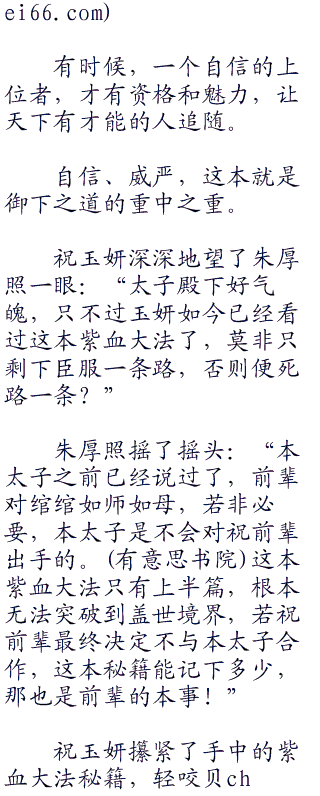 ei66.com)
有时候，一个自信的上
位者，才有资格和魅力，让
天下有才能的人追随。
自信、威严，这本就是
御下之道的重中之重。
祝玉妍深深地望了朱厚
照一眼：“太子殿下好气
魄，只不过玉妍如今已经看
过这本紫血大法了，莫非只
剩下臣服一条路，否则便死
路一条？”
朱厚照摇了摇头：“本
太子之前已经说过了，前辈
对绾绾如师如母，若非必
要，本太子是不会对祝前辈
出手的。(有意思书院)这本
紫血大法只有上半篇，根本
无法突破到盖世境界，若祝
前辈最终决定不与本太子合
作，这本秘籍能记下多少，
那也是前辈的本事！”
祝玉妍攥紧了手中的紫
血大法秘籍，轻咬贝ch